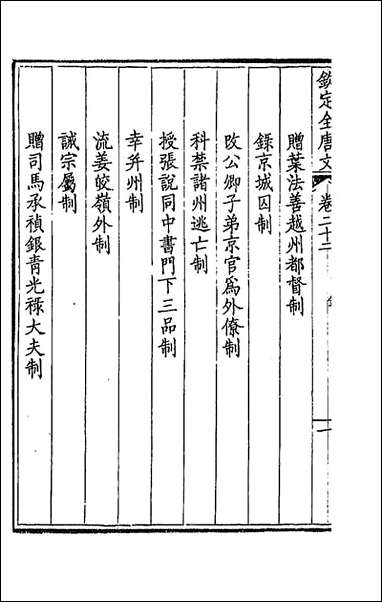 欽定全唐文 卷二十二 目錄 一
贈葉法善越州都督制
錄京城囚制
改公卿子弟京官爲外僚制
科禁諸州逃亡制
授張說同中書門下三品制
幸幷州制
流姜皎嶺外制
誡宗屬制
贈司馬承禎銀青光祿大夫制